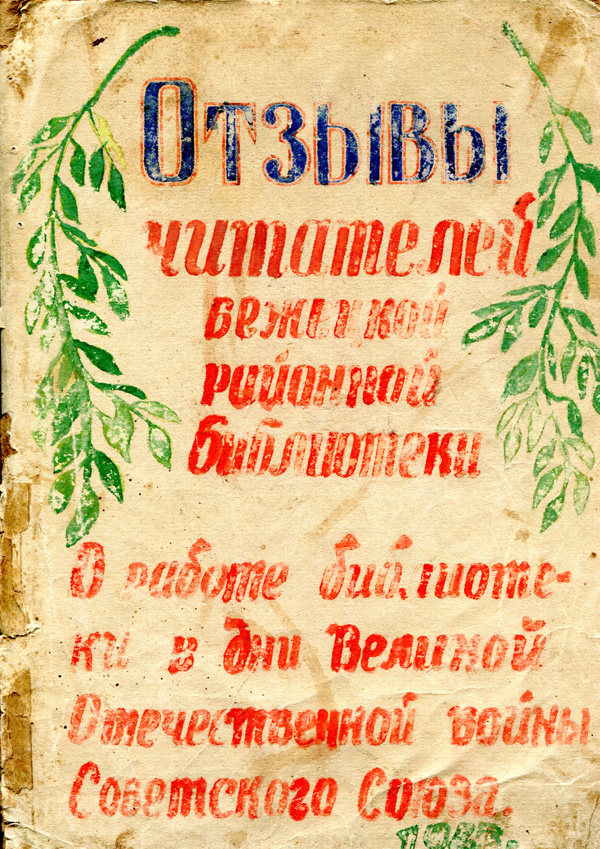 Отзывы
читателей
бежецкой
районной
библиотеки
О работе библиоте-
ки в дни Великой
Отечественной войны
Советского Союза.